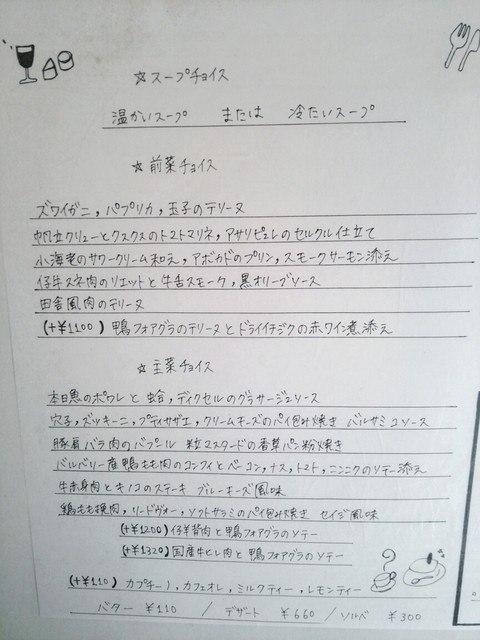 ☆スープチョイス
温かいスープ または 冷たいスープ
☆前菜チョイス
ズワイガニ,パプリカ,玉子のテリーヌ
帆立クリューとクスクスのトマトマリネ,アサリピュレのセルクル仕立て
小海老のサワークリーム和え,アボカドのプリン,スモークサーモン添え
仔牛スネ肉のリエットと牛舌スモーク,黒オリーブソース
田舎風肉のテリーヌ
(+¥1100) 鴨フォアグラのテリーヌとドライイチジクの赤ワイン煮添え
☆主菜チョイス
本日魚のポワレと蛤,ディクセルのグラサージュソース
穴子,ズッキーニ,プティサザエ,クリームチーズのパイ包み焼き バルサミコソース
豚肩バラ肉のバプール 粒マスタードの香草パン粉焼き
バルバリー産鴨もも肉のコンフィとベーコン,ナス,トマト,ニンニクのソテー添え
牛赤身肉とキノコのステーキ ブルーチーズ風味
鶏もも挽肉,リードヴォー,ソフトサラミのパイ包み焼き セイジ風味
(+¥1200) 仔羊背肉と鴨フォアグラのソテー
(+¥1320) 国産牛ヒレ肉と鴨フォアグラのソテー
(+¥110) カプチーノ,カフェオレ,ミルクティー,レモンティー
バター ¥110 / デザート ¥660 / ソルベ ¥300